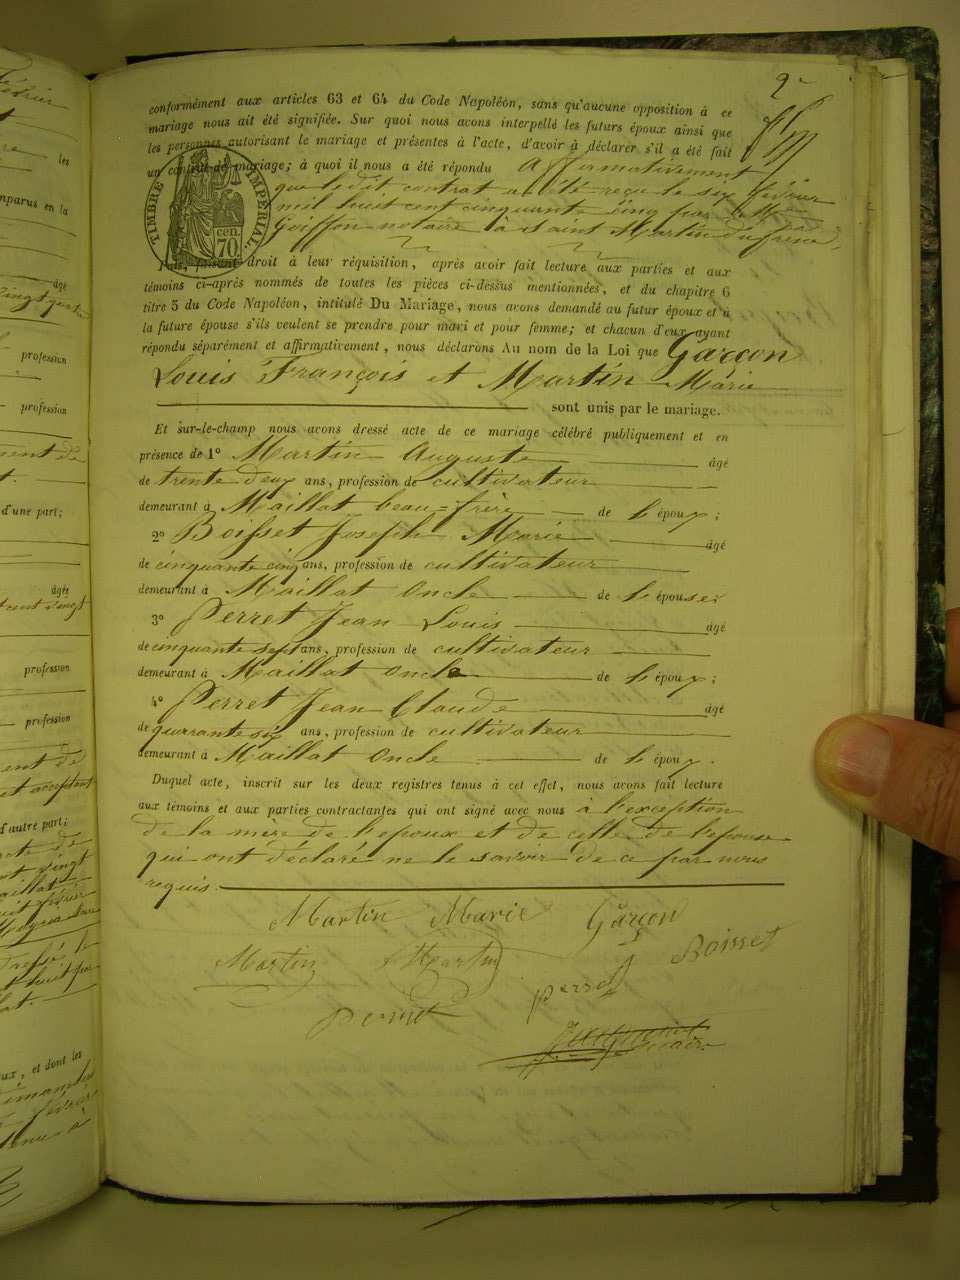 2e
conformément aux articles 63 et 64 du Code Napoléon, sans qu'aucune opposition à ce
mariage nous ait été signifiée. Sur quoi nous avons interpellé les futurs époux ainsi que
les personnes autorisant le mariage et présentes à l'acte, d'avoir à déclarer s'il a été fait
un contrat de mariage; à quoi il nous a été répondu affirmativement
que le dit contrat a été reçu le six février
mil huit cent cinquante cinq par Me
Goiffon notaire à Saint Martin du frène
TIMBRE IMPÉRIAL
70 cen.
Puis, faisant droit à leur réquisition, après avoir fait lecture aux parties et aux
témoins ci-après nommés de toutes les pièces ci-dessus mentionnées, et du chapitre 6
titre 5 du Code Napoléon, intitulé Du Mariage, nous avons demandé au futur époux et à
la future épouse s'ils veulent se prendre pour mari et pour femme; et chacun d'eux ayant
répondu séparément et affirmativement, nous déclarons Au nom de la Loi que Garçon
Louis François et Martin Marie
sont unis par le mariage.
Et sur-le-champ nous avons dressé acte de ce mariage célébré publiquement et en
présence de 1o Martin Auguste âgé
de trente deux ans, profession de cultivateur
demeurant à Maillat beau-frère de l'époux;
2o Boisset Joseph Marie âgé
de cinquante cinq ans, profession de cultivateur
demeurant à Maillat Oncle de l'épouse;
3o Perret Jean Louis âgé
de cinquante sept ans, profession de cultivateur
demeurant à Maillat Oncle de l'époux;
4o Perret Jean Claude âgé
de quarante six ans, profession de cultivateur
demeurant à Maillat Oncle de l'époux.
Duquel acte, inscrit sur les deux registres tenus à cet effet, nous avons fait lecture
aux témoins et aux parties contractantes qui ont signé avec nous à l'exception
de la mère de l'époux et de celle de l'épouse
qui ont déclaré ne le savoir de ce par nous
requis.
Martin Marie Garçon
Martin Martin Perret Boisset
Perret
maire